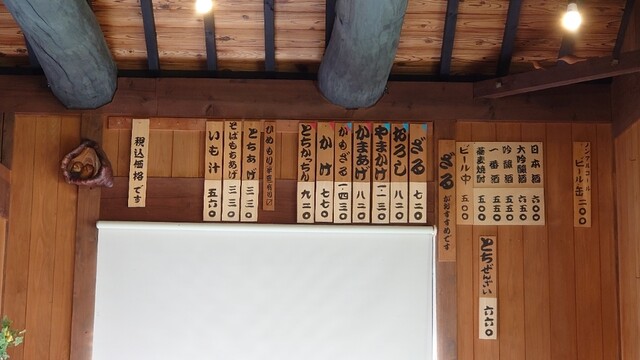 ノンアルコール
ビール缶 二〇〇
日本酒 六〇〇
大吟醸酒 六五〇
吟醸酒 五五〇
一番酒 五五〇
蕎麦焼酎 五〇〇
ビール中 五五〇
とちぜんざい 六六〇
ざるがおすすめです
ざる 七一〇
おろし 八二〇
やまかけ 一一三〇
かまあげ 八二〇
かもざる 一四三〇
かけ 七七〇
とちかっちん 九二〇
とちあげ 三三〇
そばもちあげ 三三〇
いも汁 五六〇
税込価格です